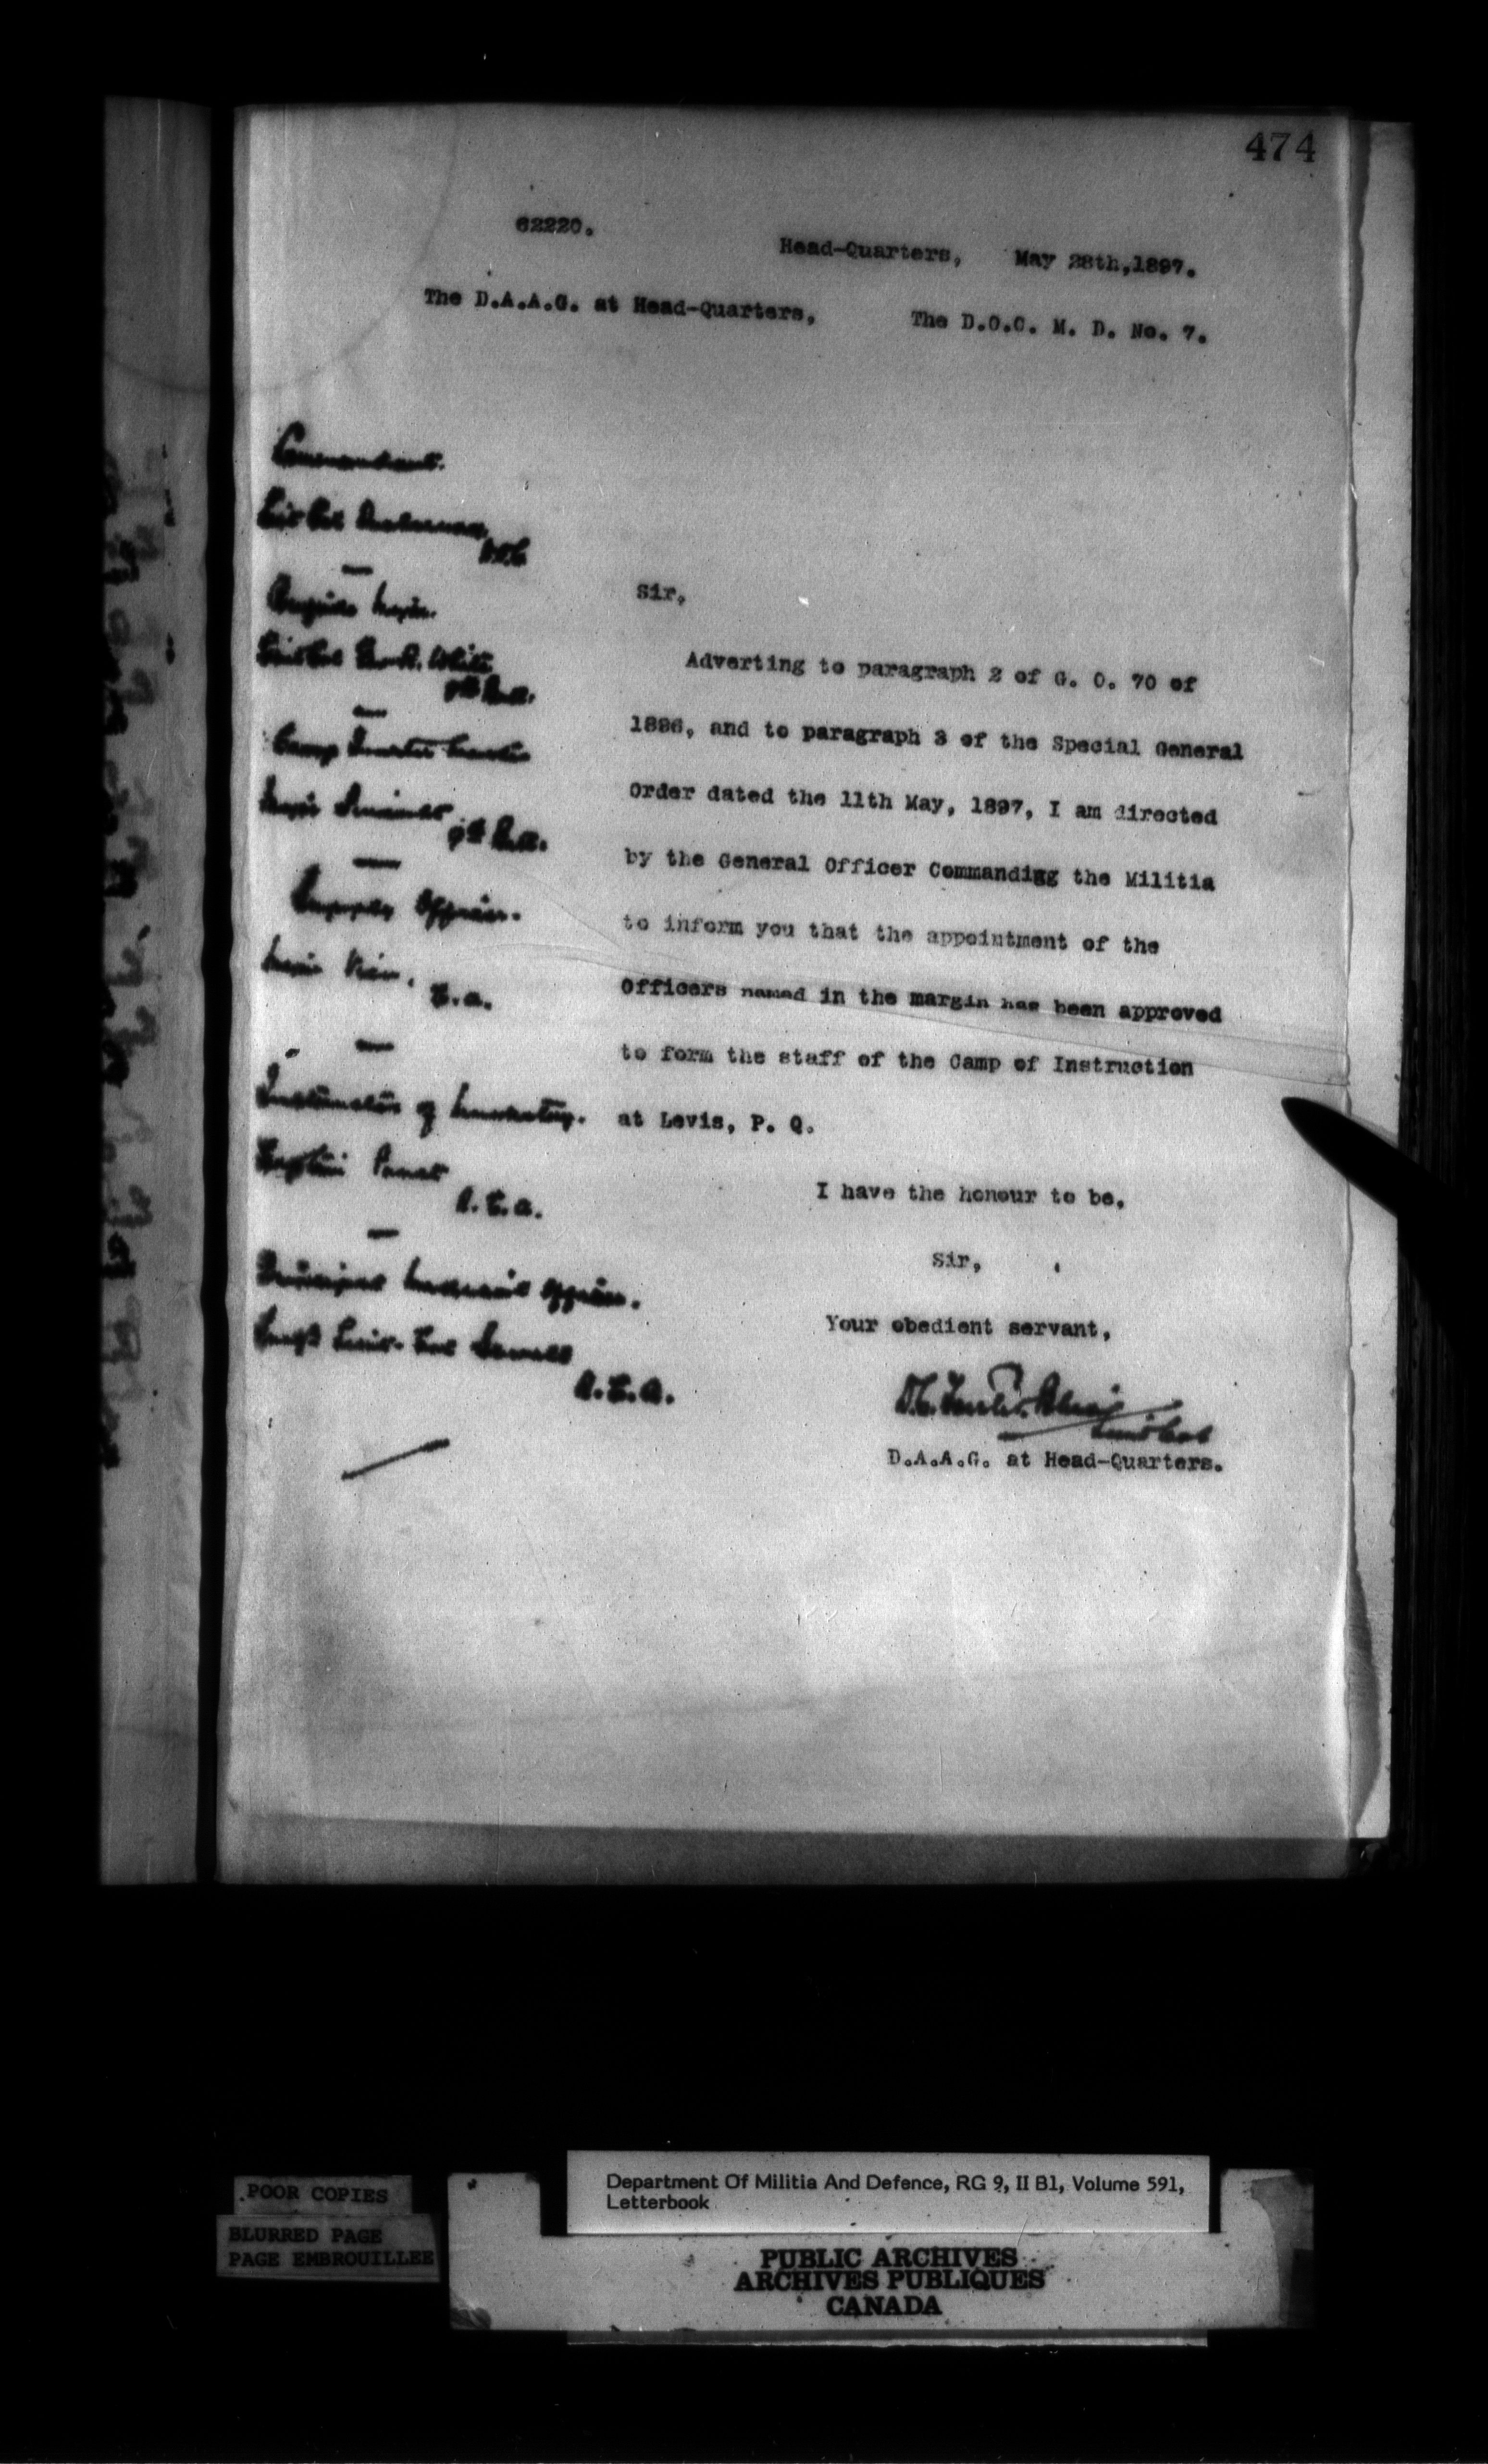 474
62220.
Head-Quarters, May 28th, 1897.
The D.A.A.G. at Head-Quarters,
The D.O.C. M. D. No. 7.
Commandant.
Brigade Major.
White
Camp Quarter Master
Major
Supply Officer.
Major
Instructor of Musketry.
Captain Panet
R.C.A.
Principal Medical Officer.
Surg. Lieut-Col Sewell
R.C.A.
Sir,
Adverting to paragraph 2 of G. O. 70 of
1896, and to paragraph 3 of the Special General
Order dated the 11th May, 1897, I am directed
by the General Officer Commanding the Militia
to inform you that the appointment of the
Officers named in the margin has been approved
to form the staff of the Camp of Instruction
at Levis, P. Q.
I have the honour to be,
Sir,
Your obedient servant,
Lieut Col
D.A.A.G. at Head-Quarters.
POOR COPIES
BLURRED PAGE
PAGE EMBROUILLEE
Department Of Militia And Defence, RG 9, II B1, Volume 591,
Letterbook
PUBLIC ARCHIVES
ARCHIVES PUBLIQUES
CANADA